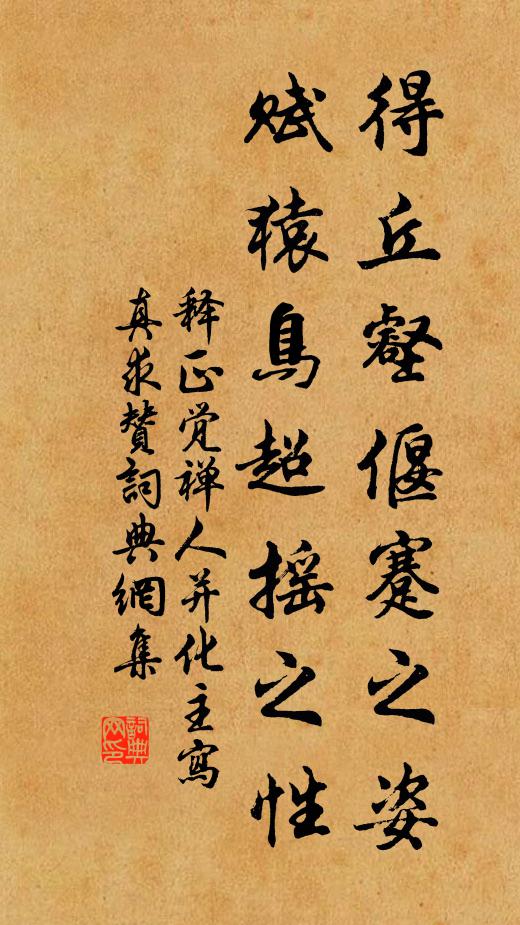 得丘壑偃蹇之姿
赋猿鳥超摇之性
释正觉禅人并化主寫
真求赞詞典網集
詞典网印